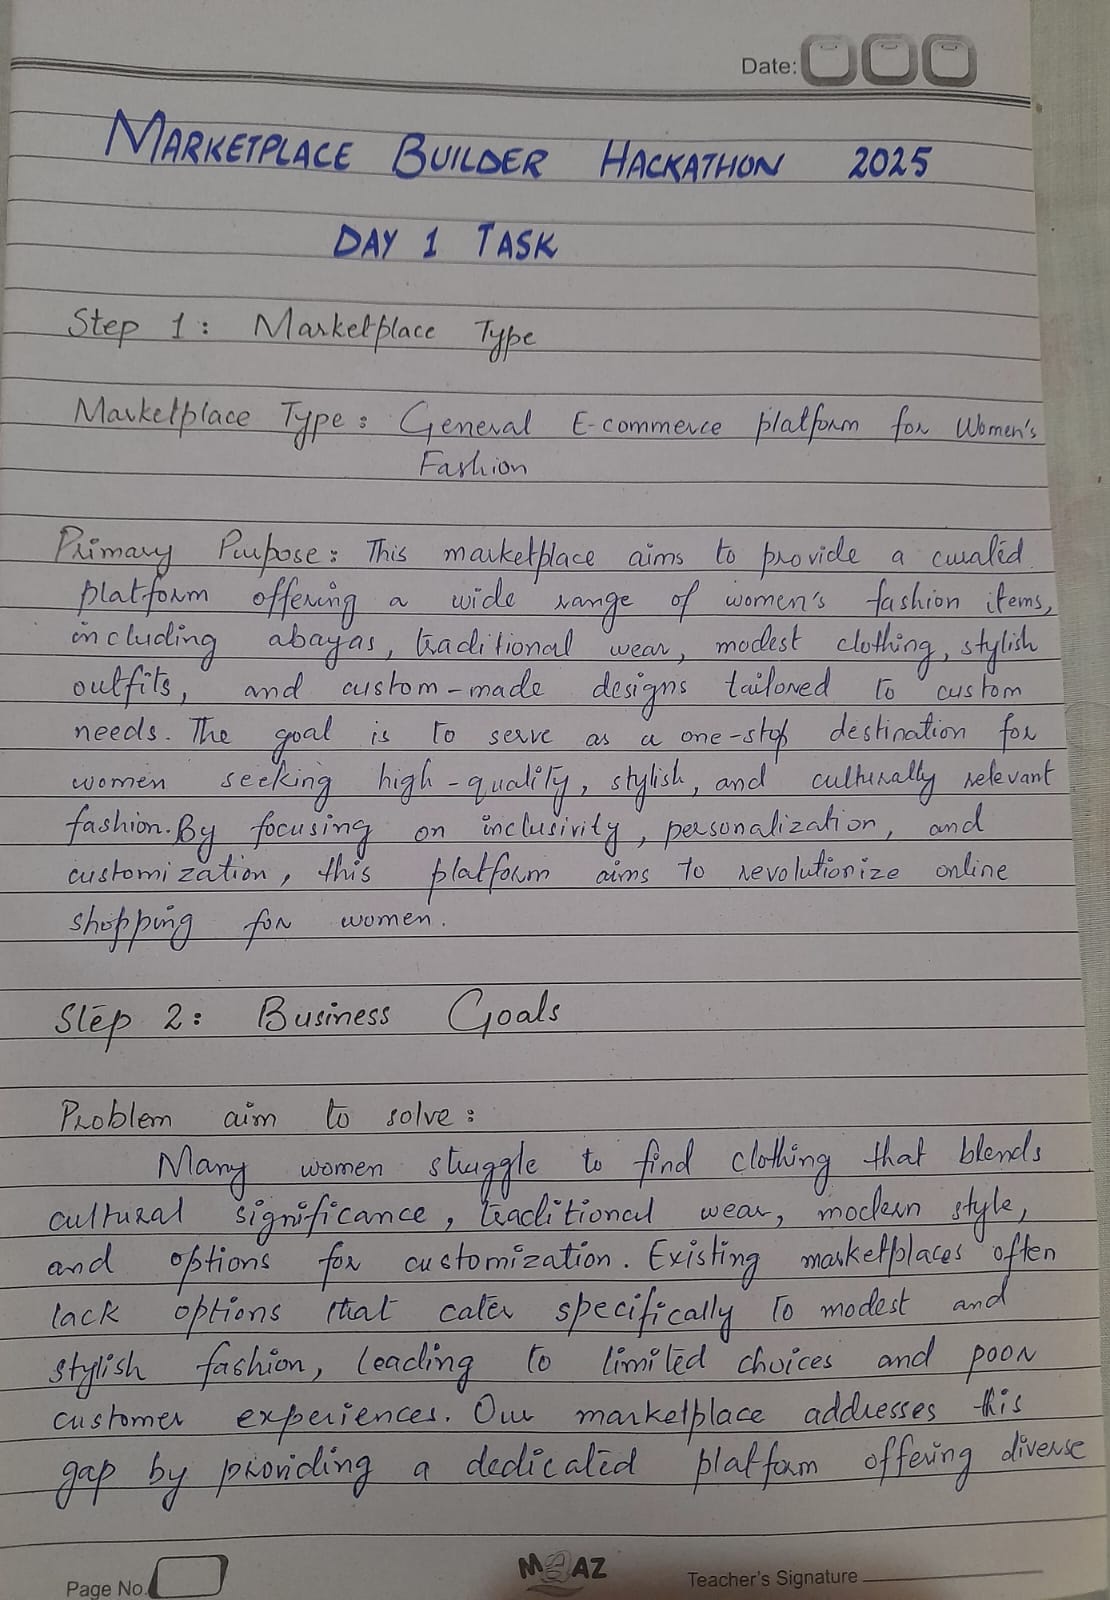 Date:
MARKETPLACE BUILDER HACKATHON 2025
DAY 1 TASK
Step 1: Marketplace Type
Marketplace Type: General E-commerce platform for Women's
Fashion
Primary Purpose: This marketplace aims to provide a curated
platform offering a wide range of women's fashion items,
including abayas, traditional wear, modest clothing, stylish
outfits, and custom-made designs tailored to custom
needs. The goal is to serve as a one-stop destination for
women seeking high-quality, stylish, and culturally relevant
fashion. By focusing on inclusivity, personalization, and
customization, this platform aims to revolutionize online
shopping for women.
Step 2: Business Goals
Problem aim to solve:
Many women struggle to find clothing that blends
cultural significance, traditional wear, modern style,
and options for customization. Existing marketplaces often
lack options that cater specifically to modest and
stylish fashion, leading to limited choices and poor
customer experiences. Our marketplace addresses this
gap by providing a dedicated platform offering diverse
Page No. MAAZ Teacher's Signature